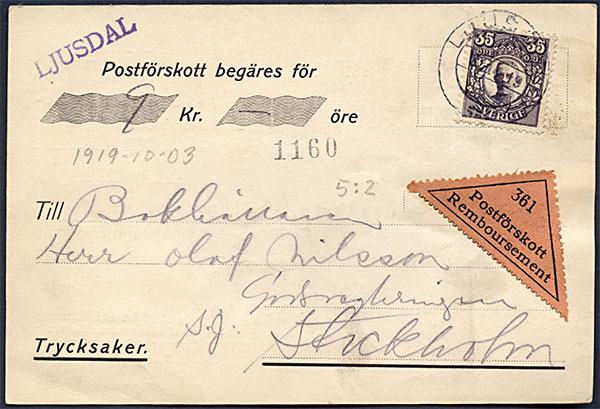 LJUSDAL
Postförskott begäres för
9 Kr. — öre
1919-10-03
1160
5:2
LJUS
35 35
ÖRE ÖRE
SVERIGE
361
Postförskott
Remboursement
Till Bokhållaren
Herr Olof Nilsson
S.J. Stockholm
Trycksaker.